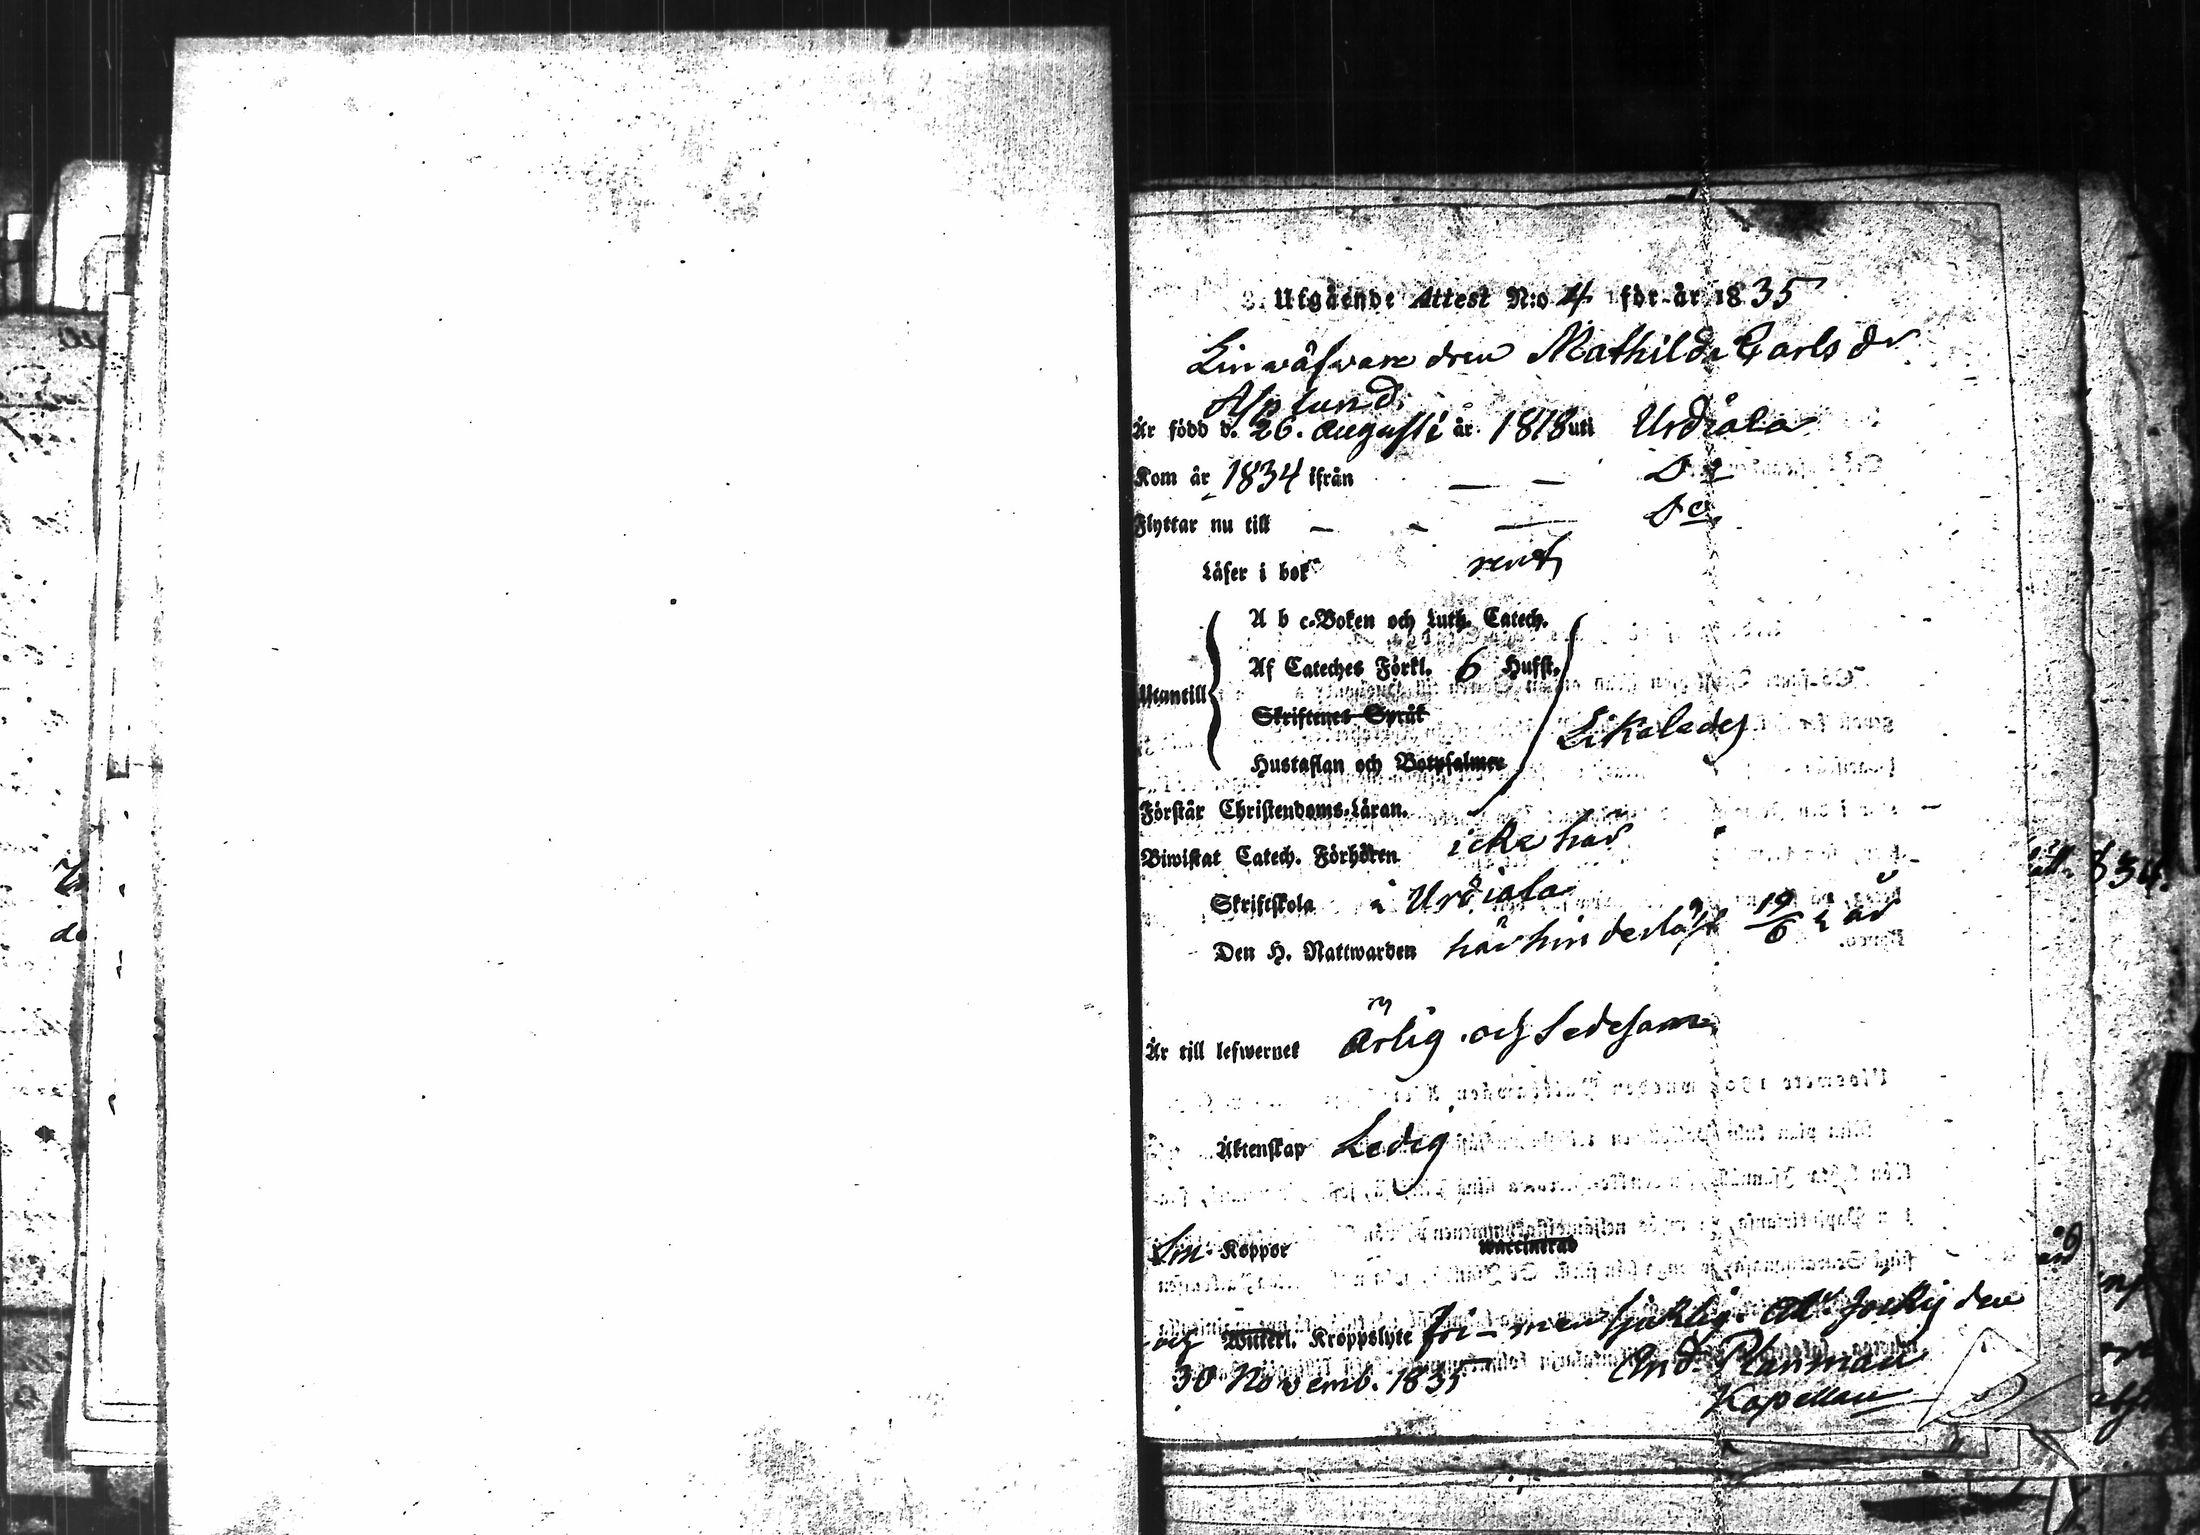 Utgående Attest N:o 4 för år 1835
Linväfvare dren Mathilda Carls dr
Asplund
Är född d. 26. Augusti år 1818 uti Urdiala
Kom år 1834 ifrån — — Do
Flyttar nu till – - — Do
Läser i bok rent
A b c-Boken och Luth. Catech.
Af Cateches Förkl. 6 Hufst.
Utantill
Skriftenes Språk
Likaledes
Hustaflan och Botpsalmer
Förstår Christendoms-Läran.
Biwistat Catech. Förhören icke här
Skriftskola i Urdiala
Den H. Nattwarden här hinderlöst 19/6 i år
Är till lefwernet ärlig och sedesam
Äktenskap Ledig
Koppor waccinerad
och Witterl. Kroppslyte fri – men sjuklig. den
30 Novemb. 1835 And. Planman
Kapellan